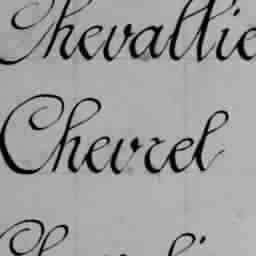 Chevallie
Chevrel